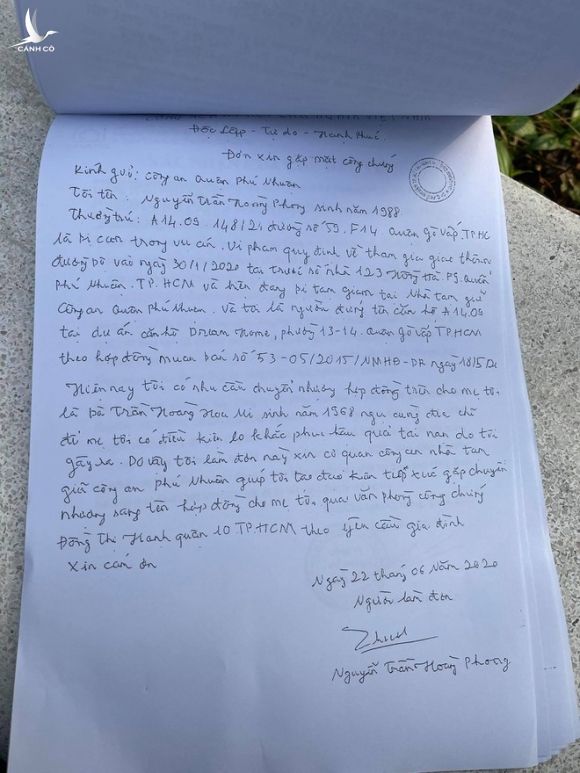 CÁNH CÒ
Độc lập - Tự do - Hạnh Phúc.
Đơn xin gặp mặt công chứng
Kính gửi: Công an Quận Phú Nhuận
Tôi tên: Nguyễn Trần Hoàng Phong sinh năm 1988.
Thường trú: A14.09 148/21 đường số 59. F14. Quận gò vấp.TPHC
là bị can trong vụ án. Vi phạm quy định về tham gia giao thông
đường bộ vào ngày 30/1/2020 tại trước số nhà 123 Hồng Hà. P9. Quận
Phú Nhuận. TP. HCM và hiện đang bị tạm giam tại Nhà tạm giữ
Công an Quận Phú Nhuận. và tôi là người đứng tên căn hộ A14.09
tại dự án căn hộ Dream Home, phường 13-14. Quận gò vấp TPHCM
theo hợp đồng mua bán số 53-05/2015/NMHĐ-DR ngày
Hiện nay tôi có nhu cầu chuyển nhượng hợp đồng trên cho mẹ tôi
là bà Trần Hoàng Họa Mi sinh năm 1968 ngụ cùng địa chỉ
để mẹ tôi có điều kiện lo khắc phục hậu quả tai nạn do tôi
gây ra. Do vậy tôi làm đơn này xin cơ quan công an nhà tạm
giữ công an Phú Nhuận giúp tôi tạo điều kiện tiếp xúc gặp chuyển
nhượng sang tên hợp đồng cho mẹ tôi, qua văn phòng công chứng
Đồng Thị Hạnh quận 10 TP.HCM theo yêu cầu gia đình
Xin cám ơn
Ngày 22 tháng 06 Năm 2020
Người làm đơn
Nguyễn Trần Hoàng Phong